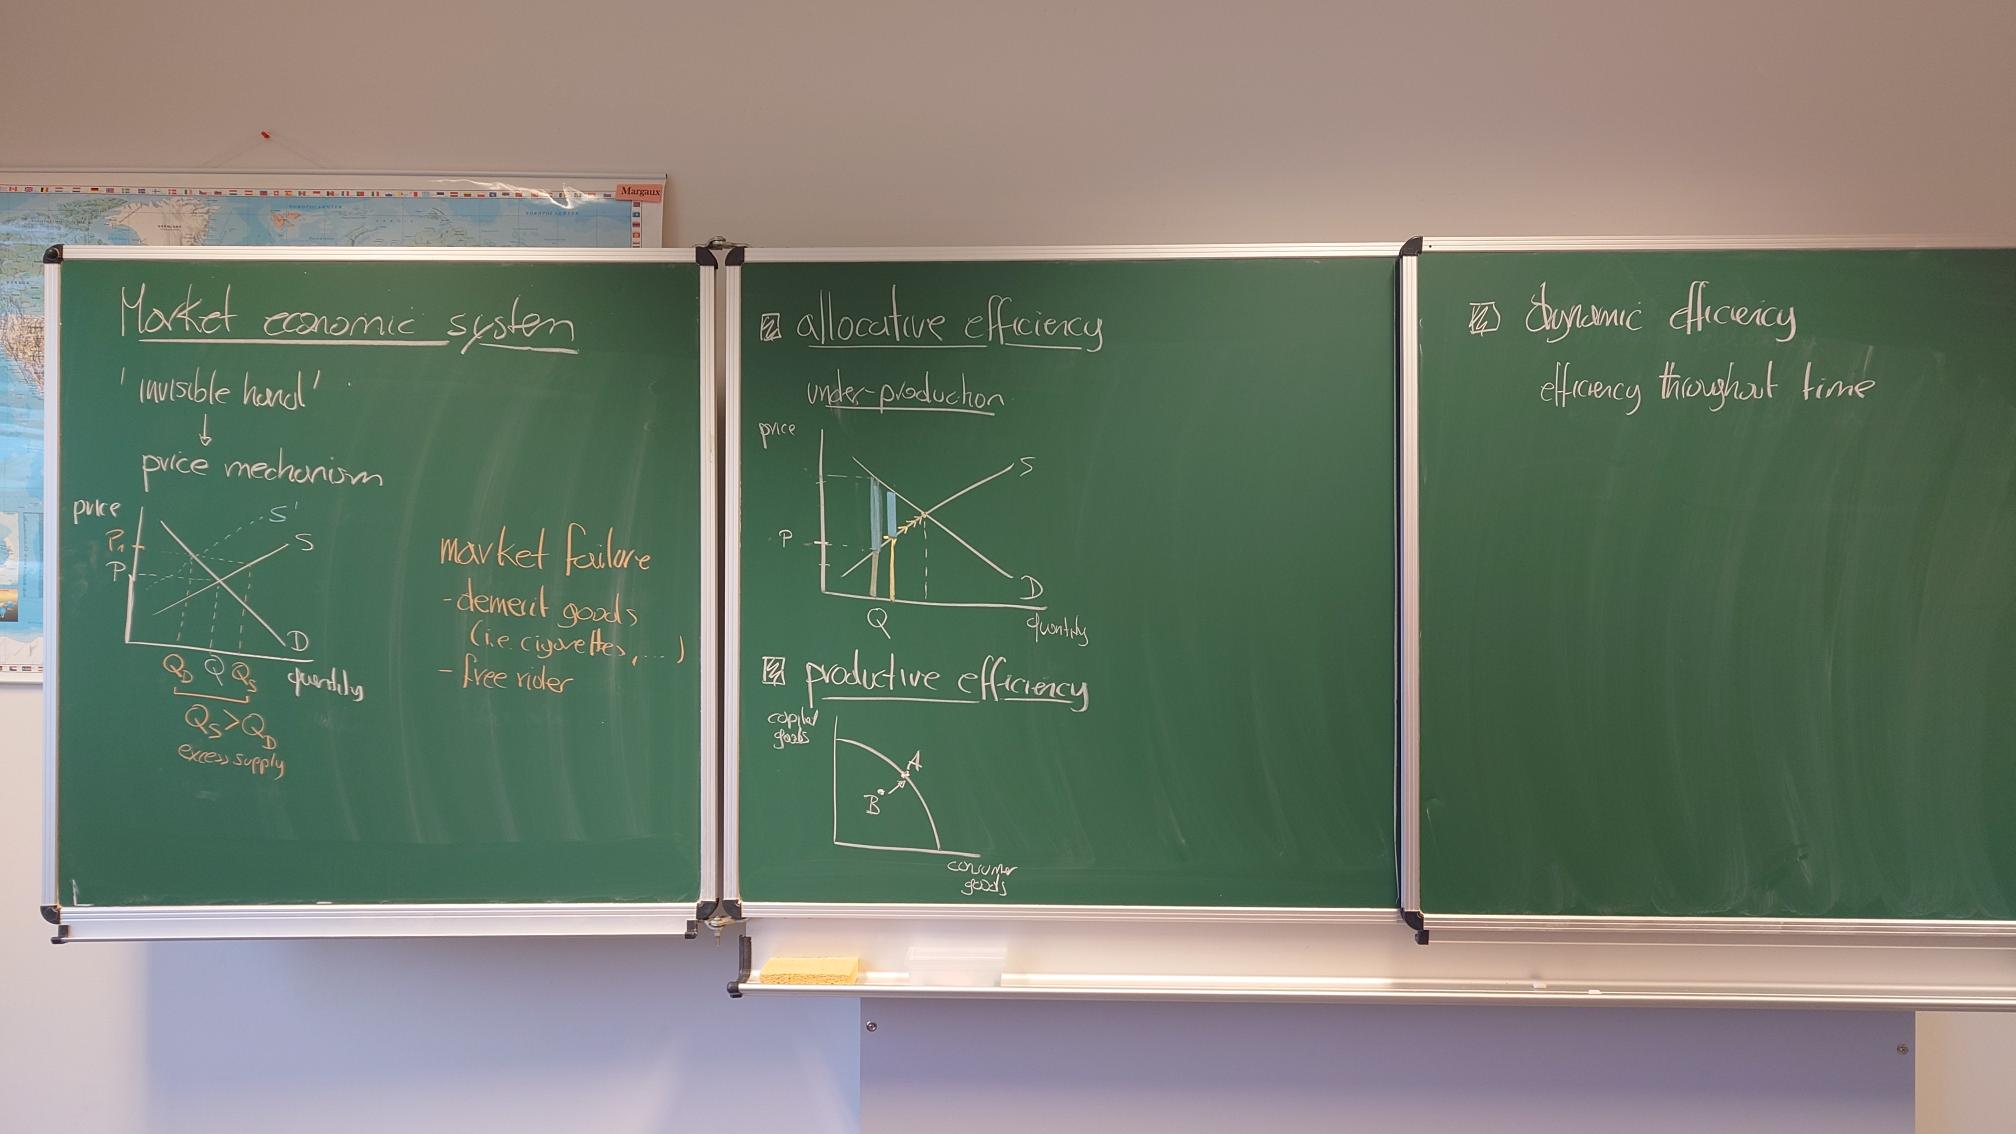 Margaux
NORDPOLARMEER
NORDPOLARMEER
Market economic system
'invisible hand'
price mechanism
price
S'
S
P1
P
D
QD Q QS
quantity
QS > QD
excess supply
market failure
- demerit goods
(i.e. cigarettes, ...)
- free rider
allocative efficiency
under-production
price
S
P
D
Q
quantity
productive efficiency
capital
goods
A
B
consumer
goods
dynamic efficiency
efficiency throughout time